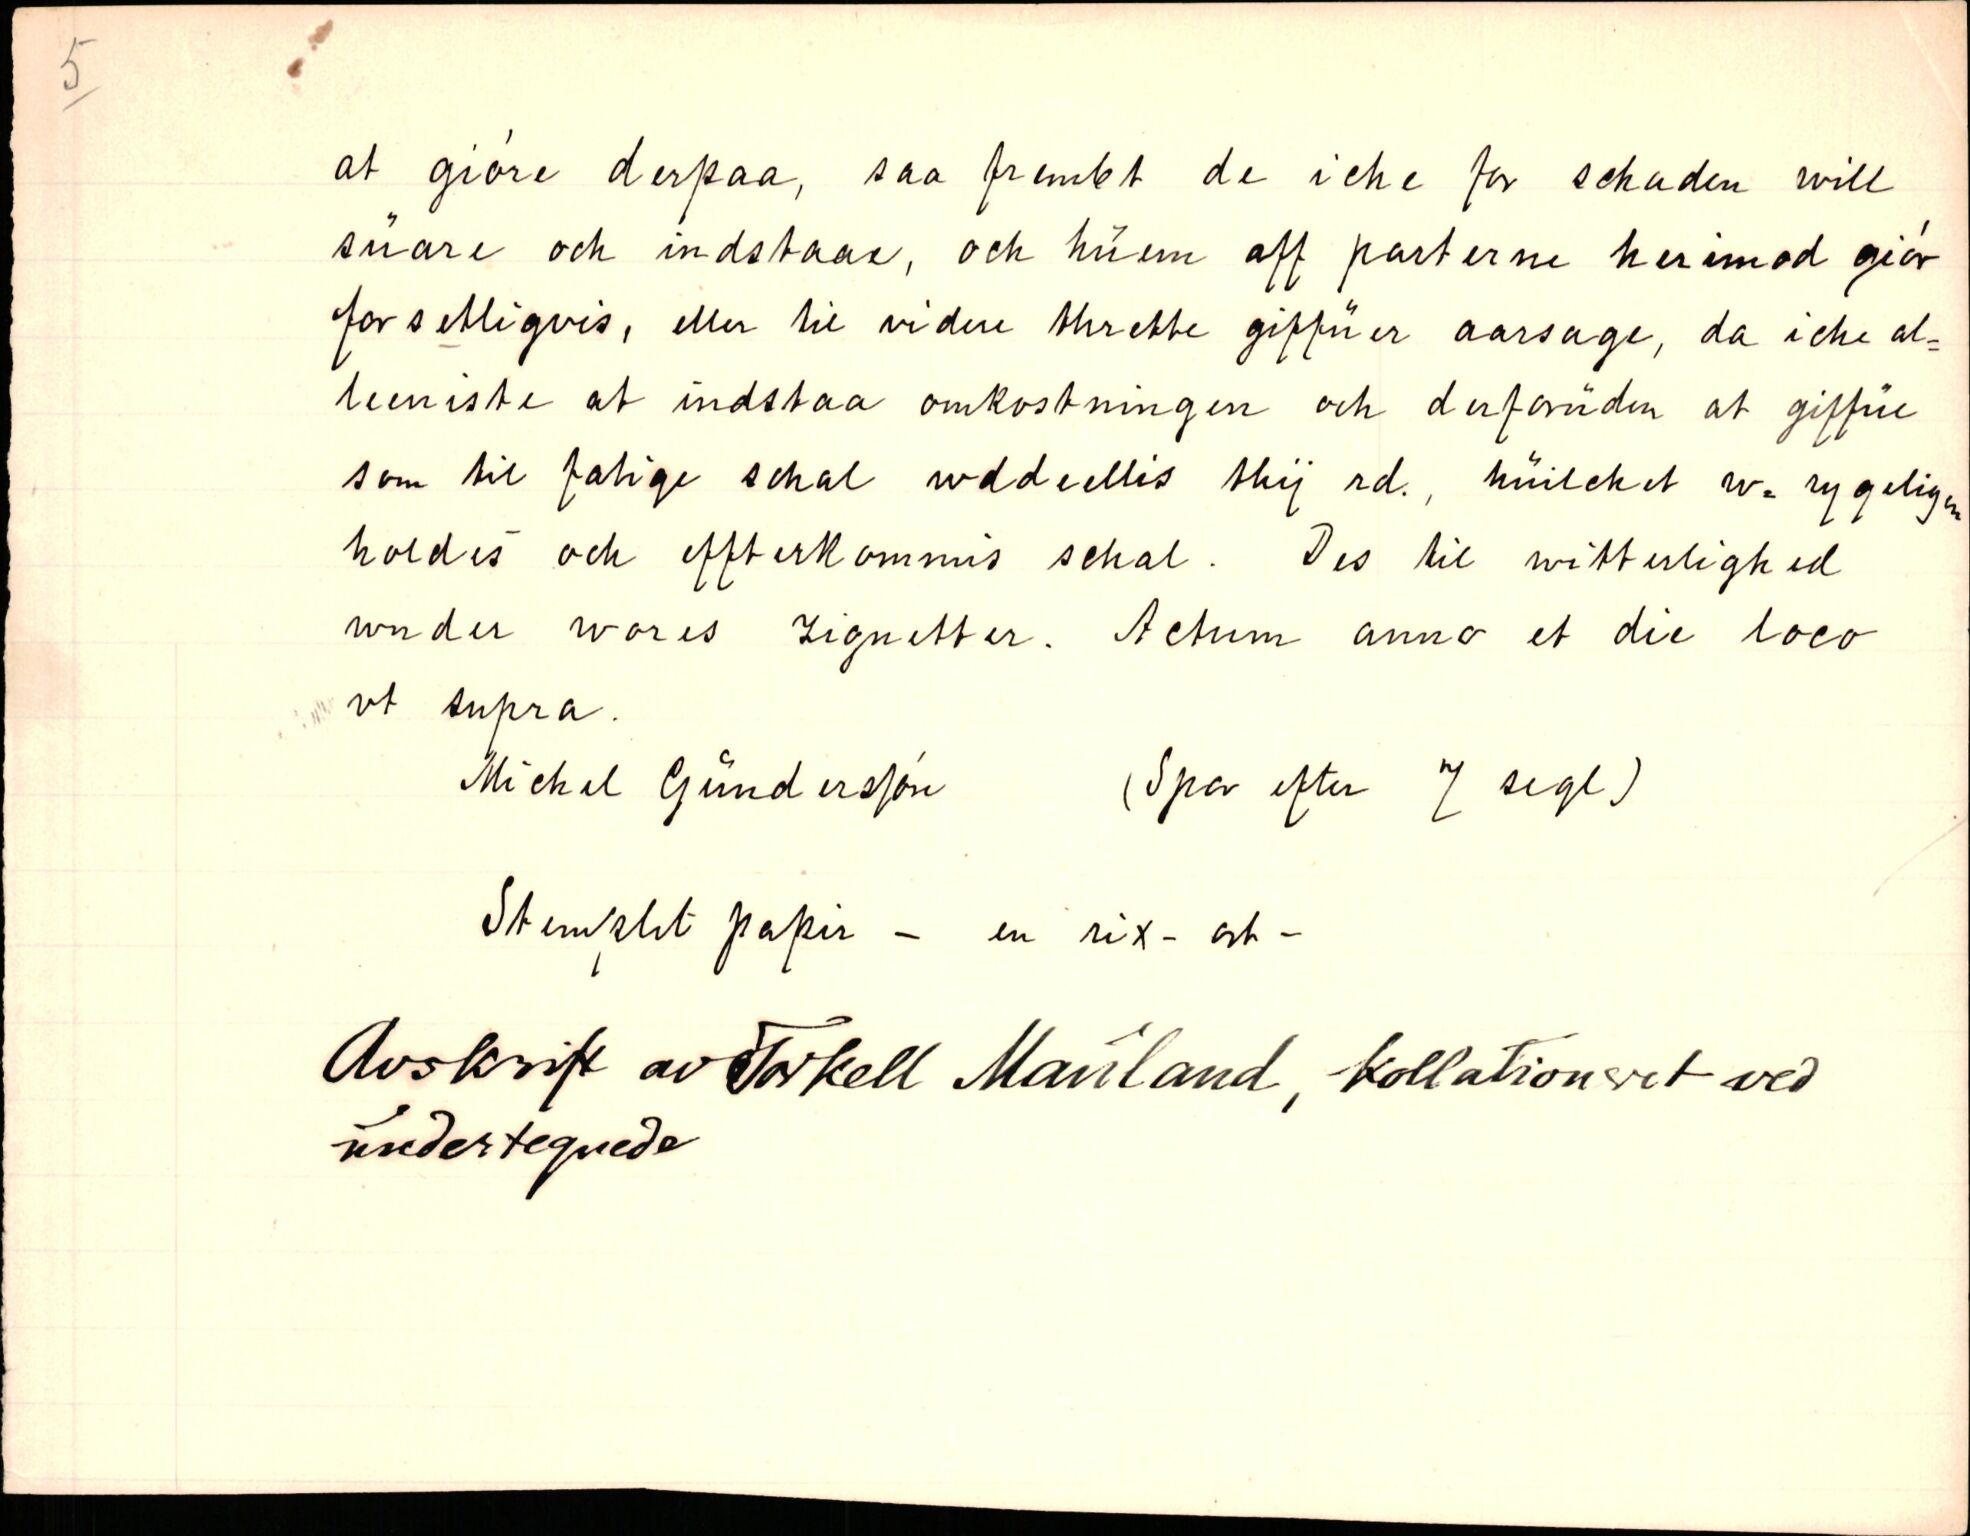 5
at gióre derpaa, saa frembt de iche for schaden will
süare och indstaae, och hüem aff parterne herimod giór
forsetligvis, eller til videre thrette giffüer aarsage, da iche al=
leeniste at indstaa omkostningen och derforüden at giffüe
som til fatige schal wddeellis thij rd., hüilchet w=rygeligen
holdes och effterkommis schal. Des til witterlighed
wnder wores zignetter. Actum anno et die loco
vt supra.
Michel Gündersfón (Spor efter 7 segl)
Stemplet papir - en rix-ort-
Avskrift av Torkell Maúland, kollationeret ved
úndertegnede